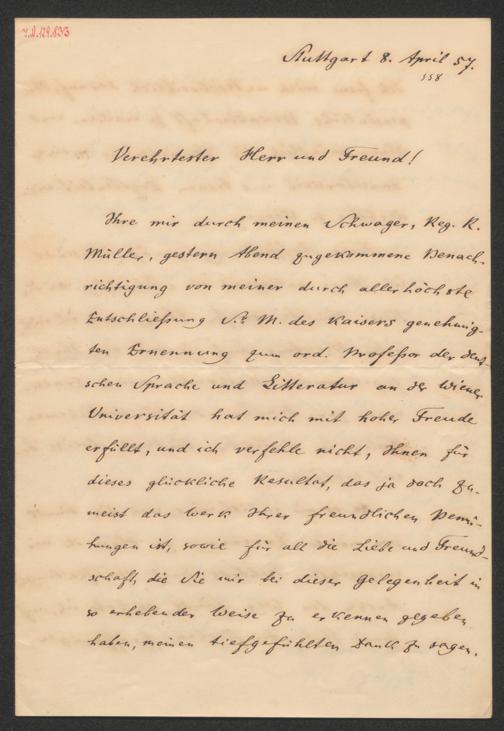 I.N.129.833
Stuttgart 8. April 57.
558
Verehrtester Herr und Freund!
Ihre mir durch meinen Schwager, Reg. R.
Müller, gestern Abend zugekommene Benach-
richtigung von meiner durch allerhöchste
Entschließung Sr. M. des Kaisers genehmig-
ten Ernennung zum ord. Professor der deut-
schen Sprache und Litteratur an der Wiener
Universität hat mich mit hoher Freude
erfüllt, und ich verfehle nicht, Ihnen für
dieses glückliche Resultat, das ja doch zu-
meist das Werk Ihrer freundlichen Bemü-
hungen ist, sowie für all die Liebe und Freund-
schaft, die Sie mir bei dieser Gelegenheit in
so erhebender Weise zu erkennen gegeben
haben, meinen tiefgefühlten Dank zu sagen.